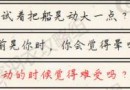 试着把船晃动大一点？
前是你时，你会觉得晕吗
动的时候觉得难受吗？